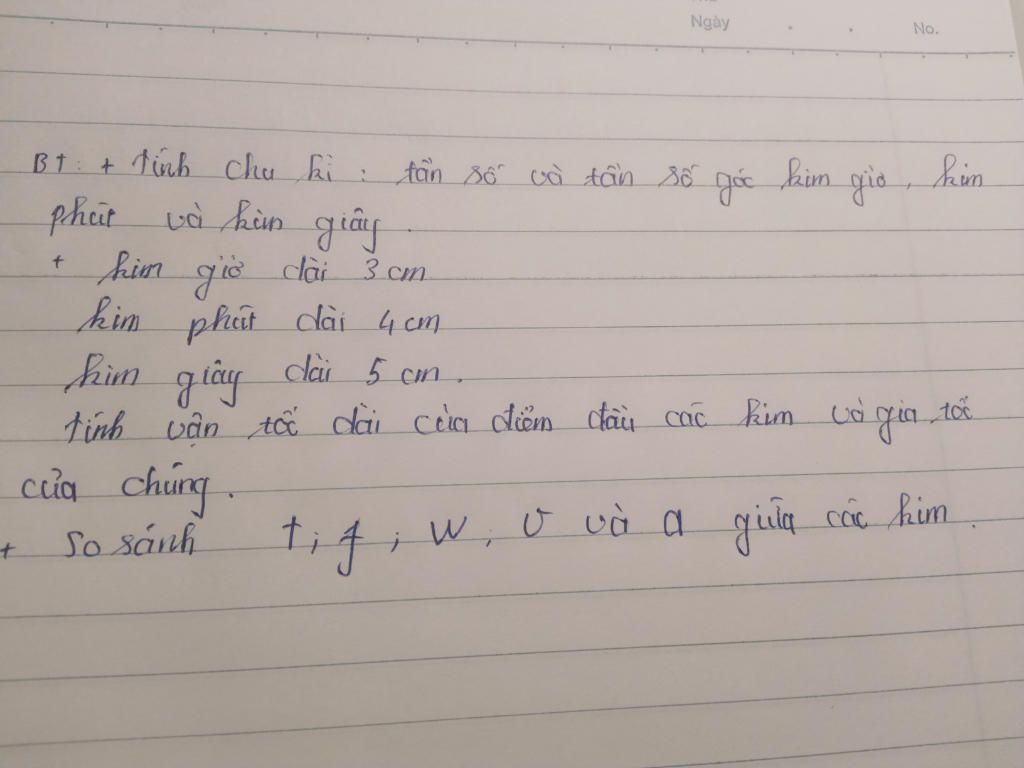 Ngày . . No.
BT: + tính chu kì : tần số và tần số góc kim giờ, kim
phút và kim giây.
+ kim giờ dài 3 cm
kim phút dài 4 cm
kim giây dài 5 cm.
tính vận tốc dài của điểm đầu các kim và gia tốc
của chúng.
+ so sánh T; f; w; v và a giữa các kim.